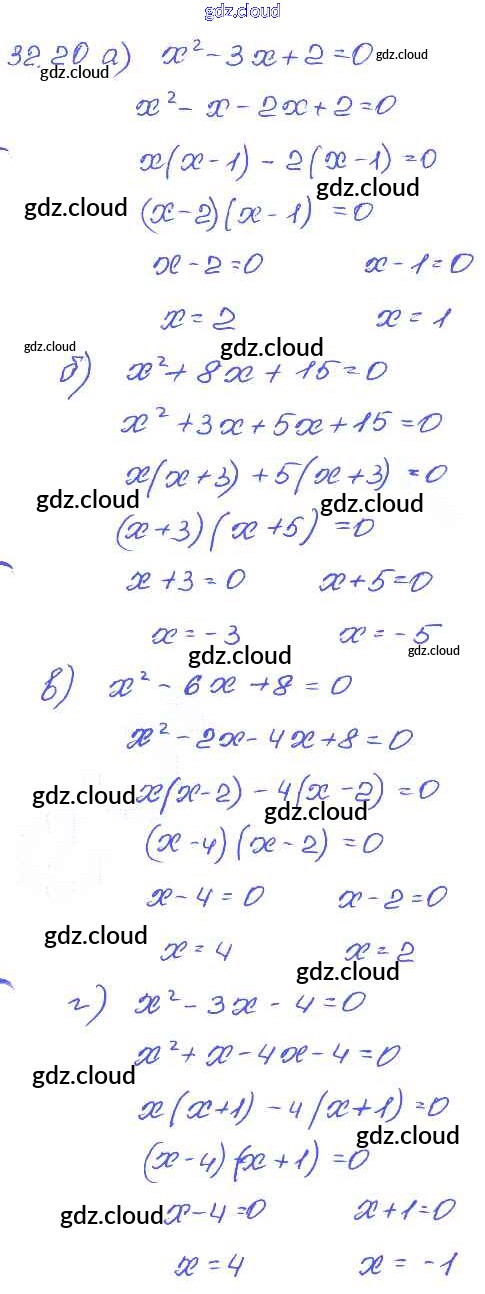 gdz.cloud
32.20 а) x² - 3x + 2 = 0 gdz.cloud
gdz.cloud
x² - x - 2x + 2 = 0
x(x - 1) - 2(x - 1) = 0
gdz.cloud
gdz.cloud (x - 2)(x - 1) = 0
x - 2 = 0 x - 1 = 0
x = 2 x = 1
gdz.cloud gdz.cloud
б) x² + 8x + 15 = 0
x² + 3x + 5x + 15 = 0
x(x + 3) + 5(x + 3) = 0
gdz.cloud gdz.cloud
(x + 3)(x + 5) = 0
x + 3 = 0 x + 5 = 0
x = - 3 x = - 5
gdz.cloud gdz.cloud
в) x² - 6x + 8 = 0
x² - 2x - 4x + 8 = 0
gdz.cloud x(x - 2) - 4(x - 2) = 0
gdz.cloud
(x - 4)(x - 2) = 0
x - 4 = 0 x - 2 = 0
gdz.cloud
x = 4 x = 2
gdz.cloud
г) x² - 3x - 4 = 0
x² + x - 4x - 4 = 0
gdz.cloud
x(x + 1) - 4(x + 1) = 0
gdz.cloud
(x - 4)(x + 1) = 0
gdz.cloud x - 4 = 0 x + 1 = 0
x = 4 x = - 1